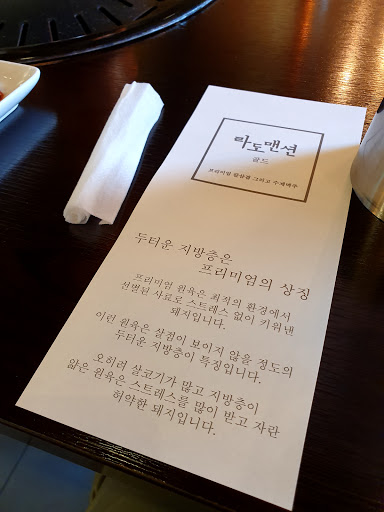 라도맨션
골드
프리미엄 한돈과 그리고 수제맥주
두터운 지방층은
프리미엄의 상징
프리미엄 원육은 최적의 환경에서
선별된 사료로 스트레스 없이 키워낸
돼지입니다.
이런 원육은 살점이 보이지 않을 정도의
두터운 지방층이 특징입니다.
오히려 살코기가 많고 지방층이
얇은 원육은 스트레스를 많이 받고 자란
허약한 돼지입니다.